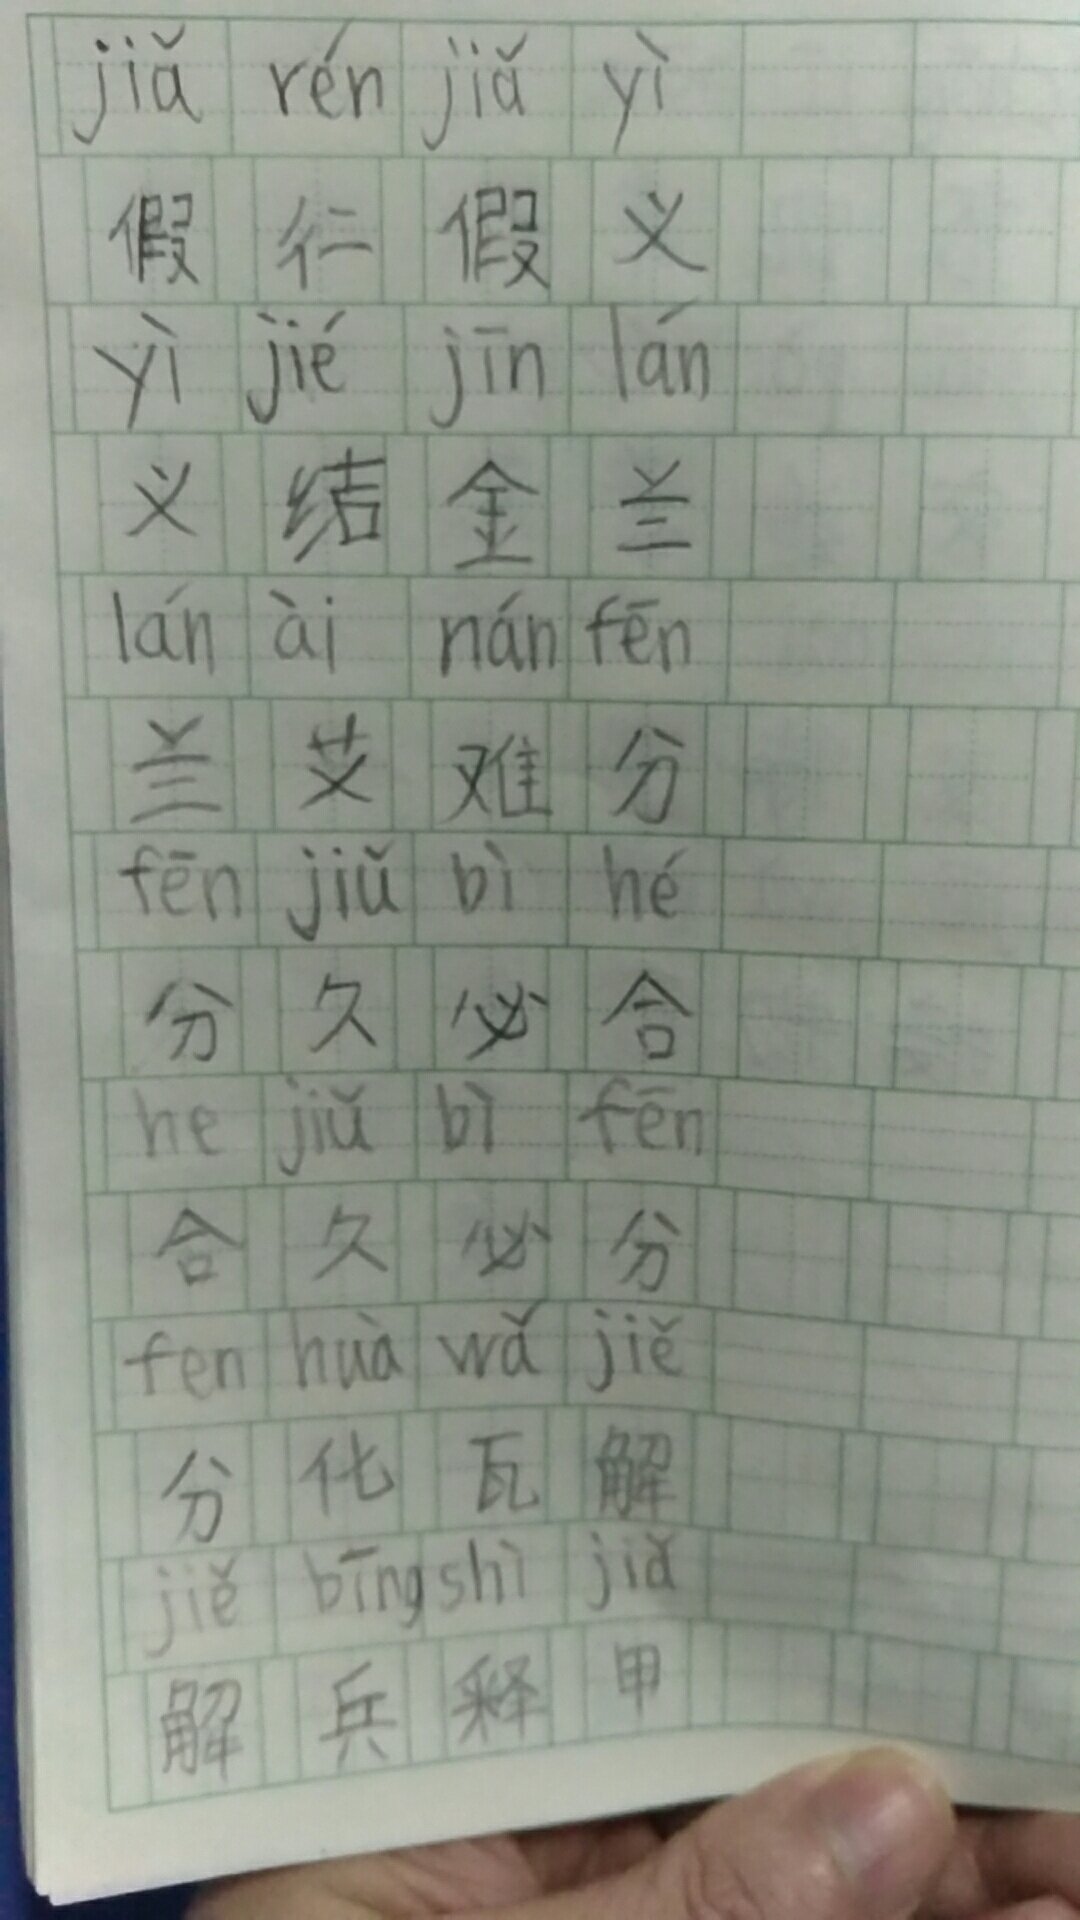 jiǎ rén jiǎ yì
假仁假义
yì jié jīn lán
义结金兰
lán ài nán fēn
兰艾难分
fēn jiǔ bì hé
分久必合
he jiǔ bì fēn
合久必分
fen huà wǎ jiě
分化瓦解
jiě bīng shì jiǎ
解兵释甲